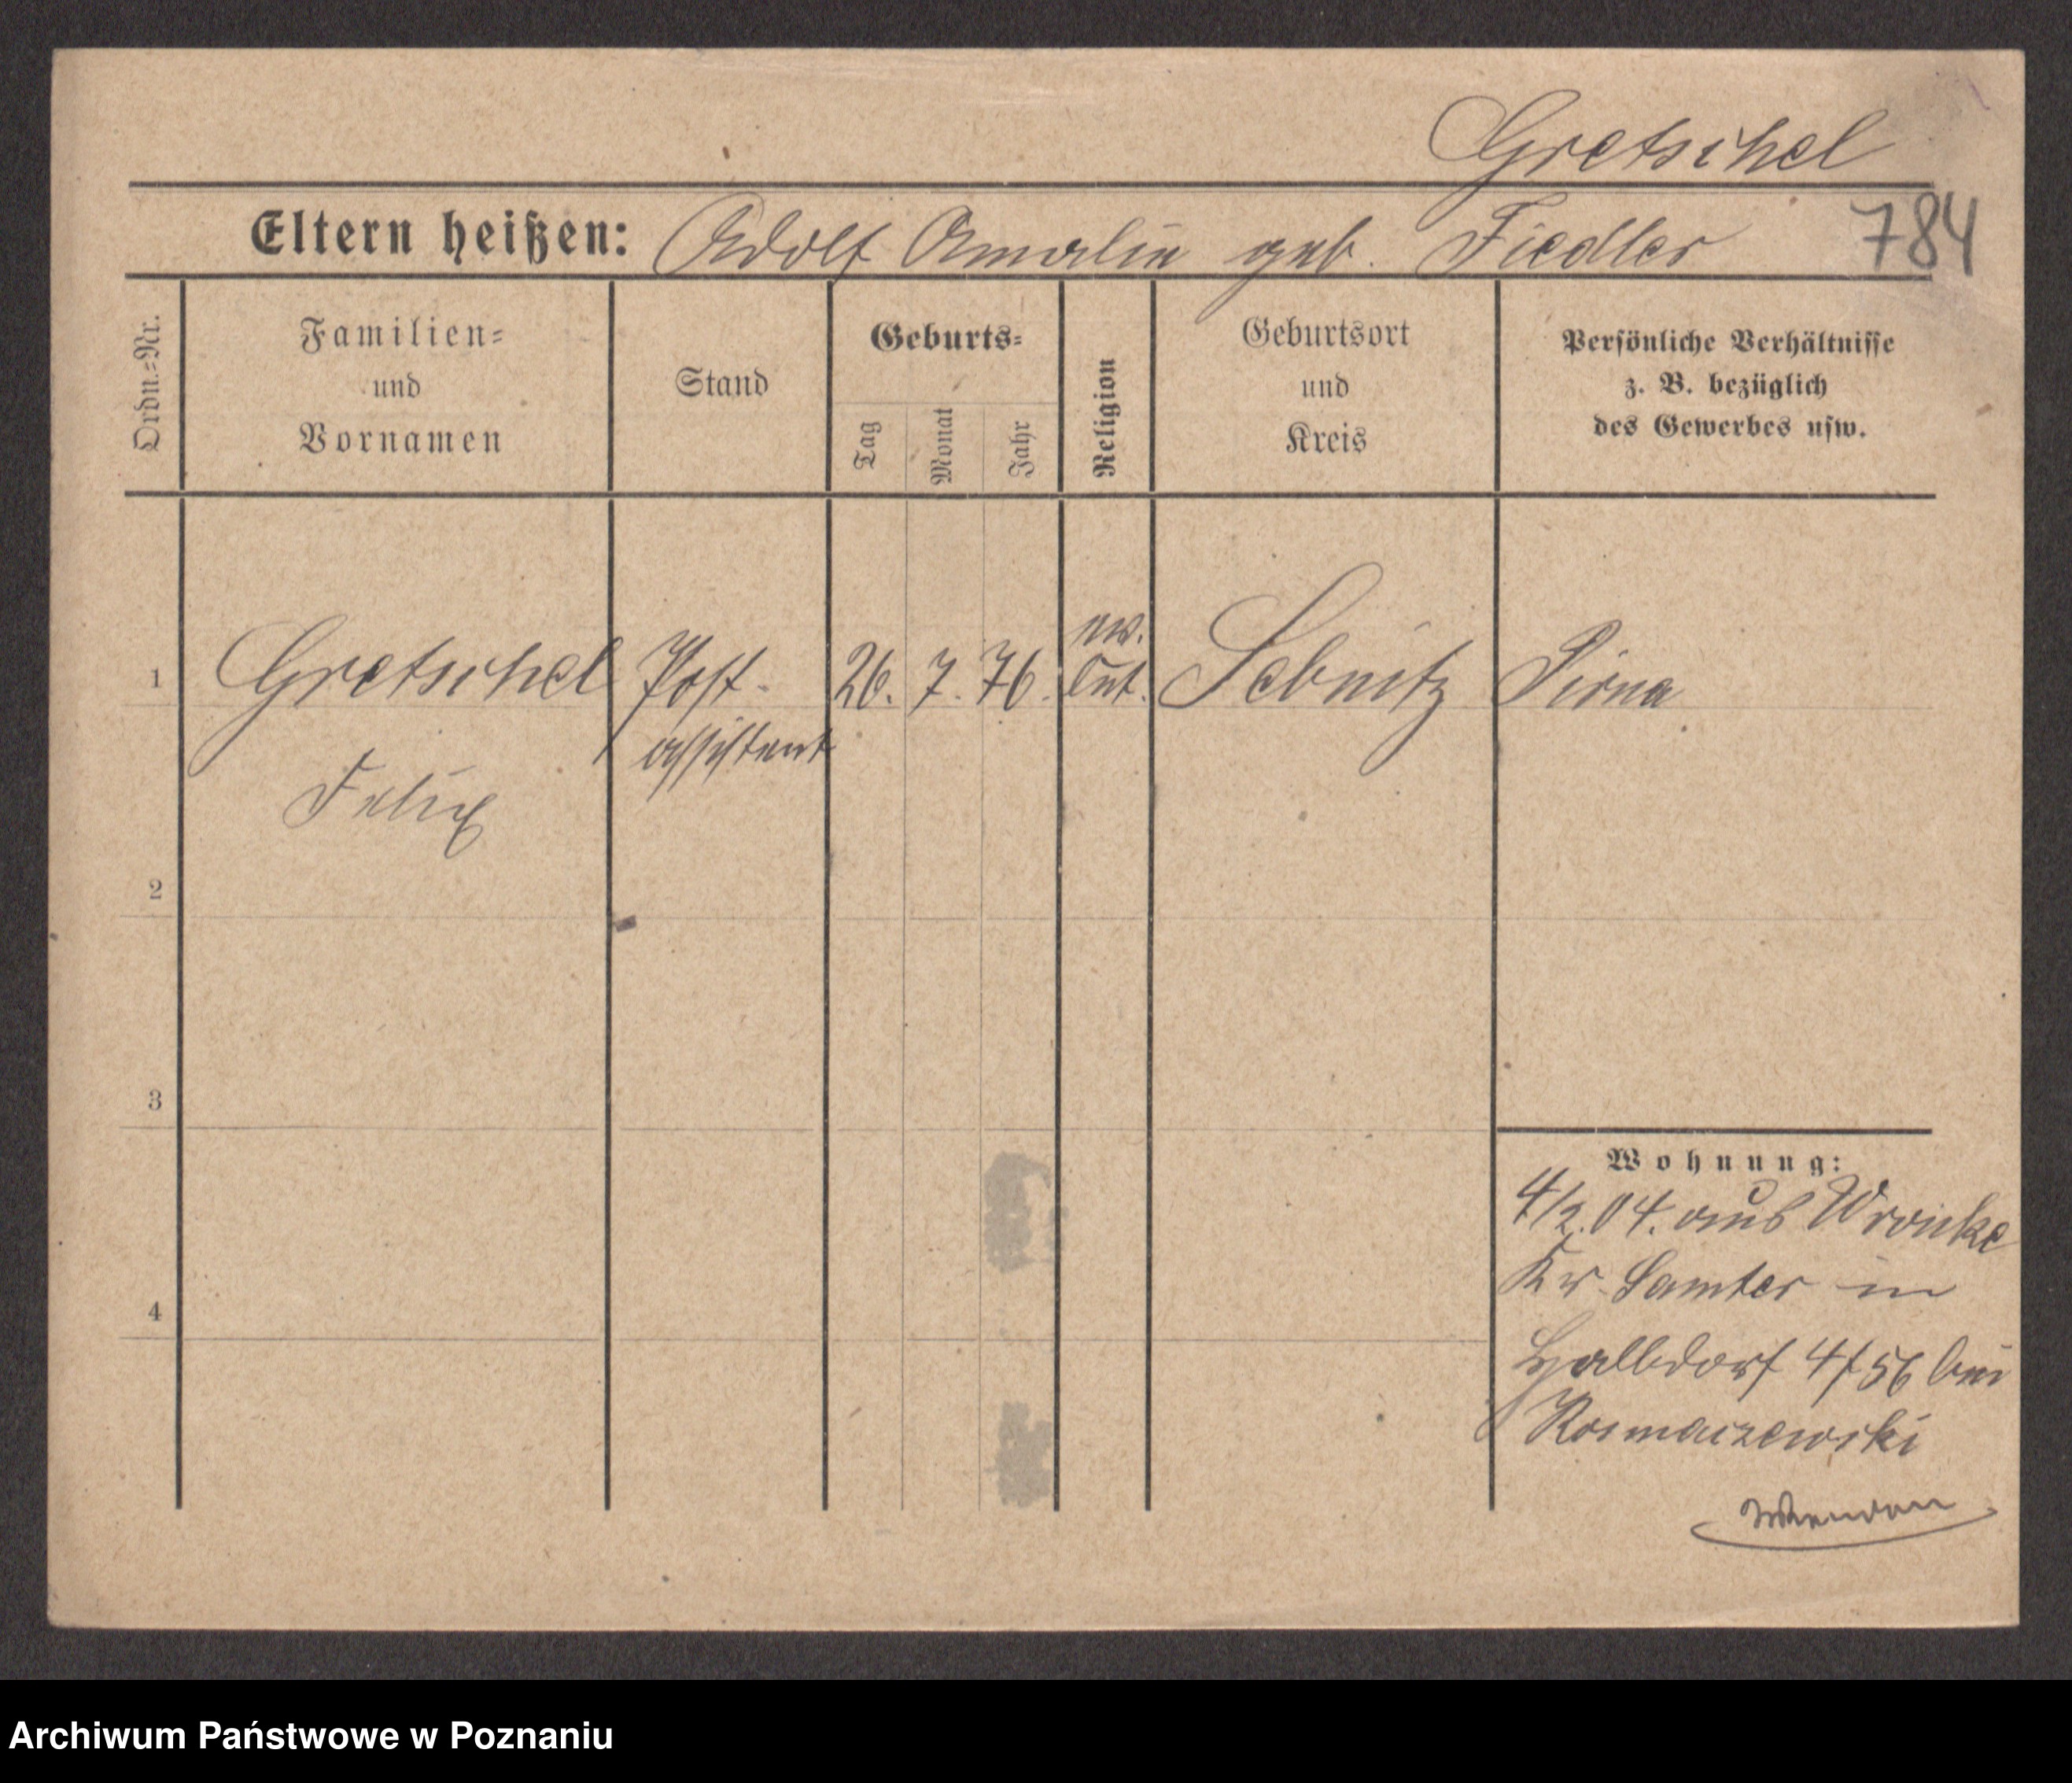 Gretschel
Eltern heißen: Adolf Amalie geb. Fiedler 784
Ordn.-Nr.
Familien-
und
Vornamen
Stand
Geburts-
Tag
Monat
Jahr
Religion
Geburtsort
und
Kreis
Persönliche Verhältnisse
z. B. bezüglich
des Gewerbes usw.
1 Gretschel Post- 26. 7. 76. ev. Lut. Sebnitz Pirna
assistent
Felix
2
3
4
Wohnung:
4/2.04. aus Wronke
Kr. Samter in
Halbdorf 4/56 bei
Rosmaizewski
Archiwum Państwowe w Poznaniu